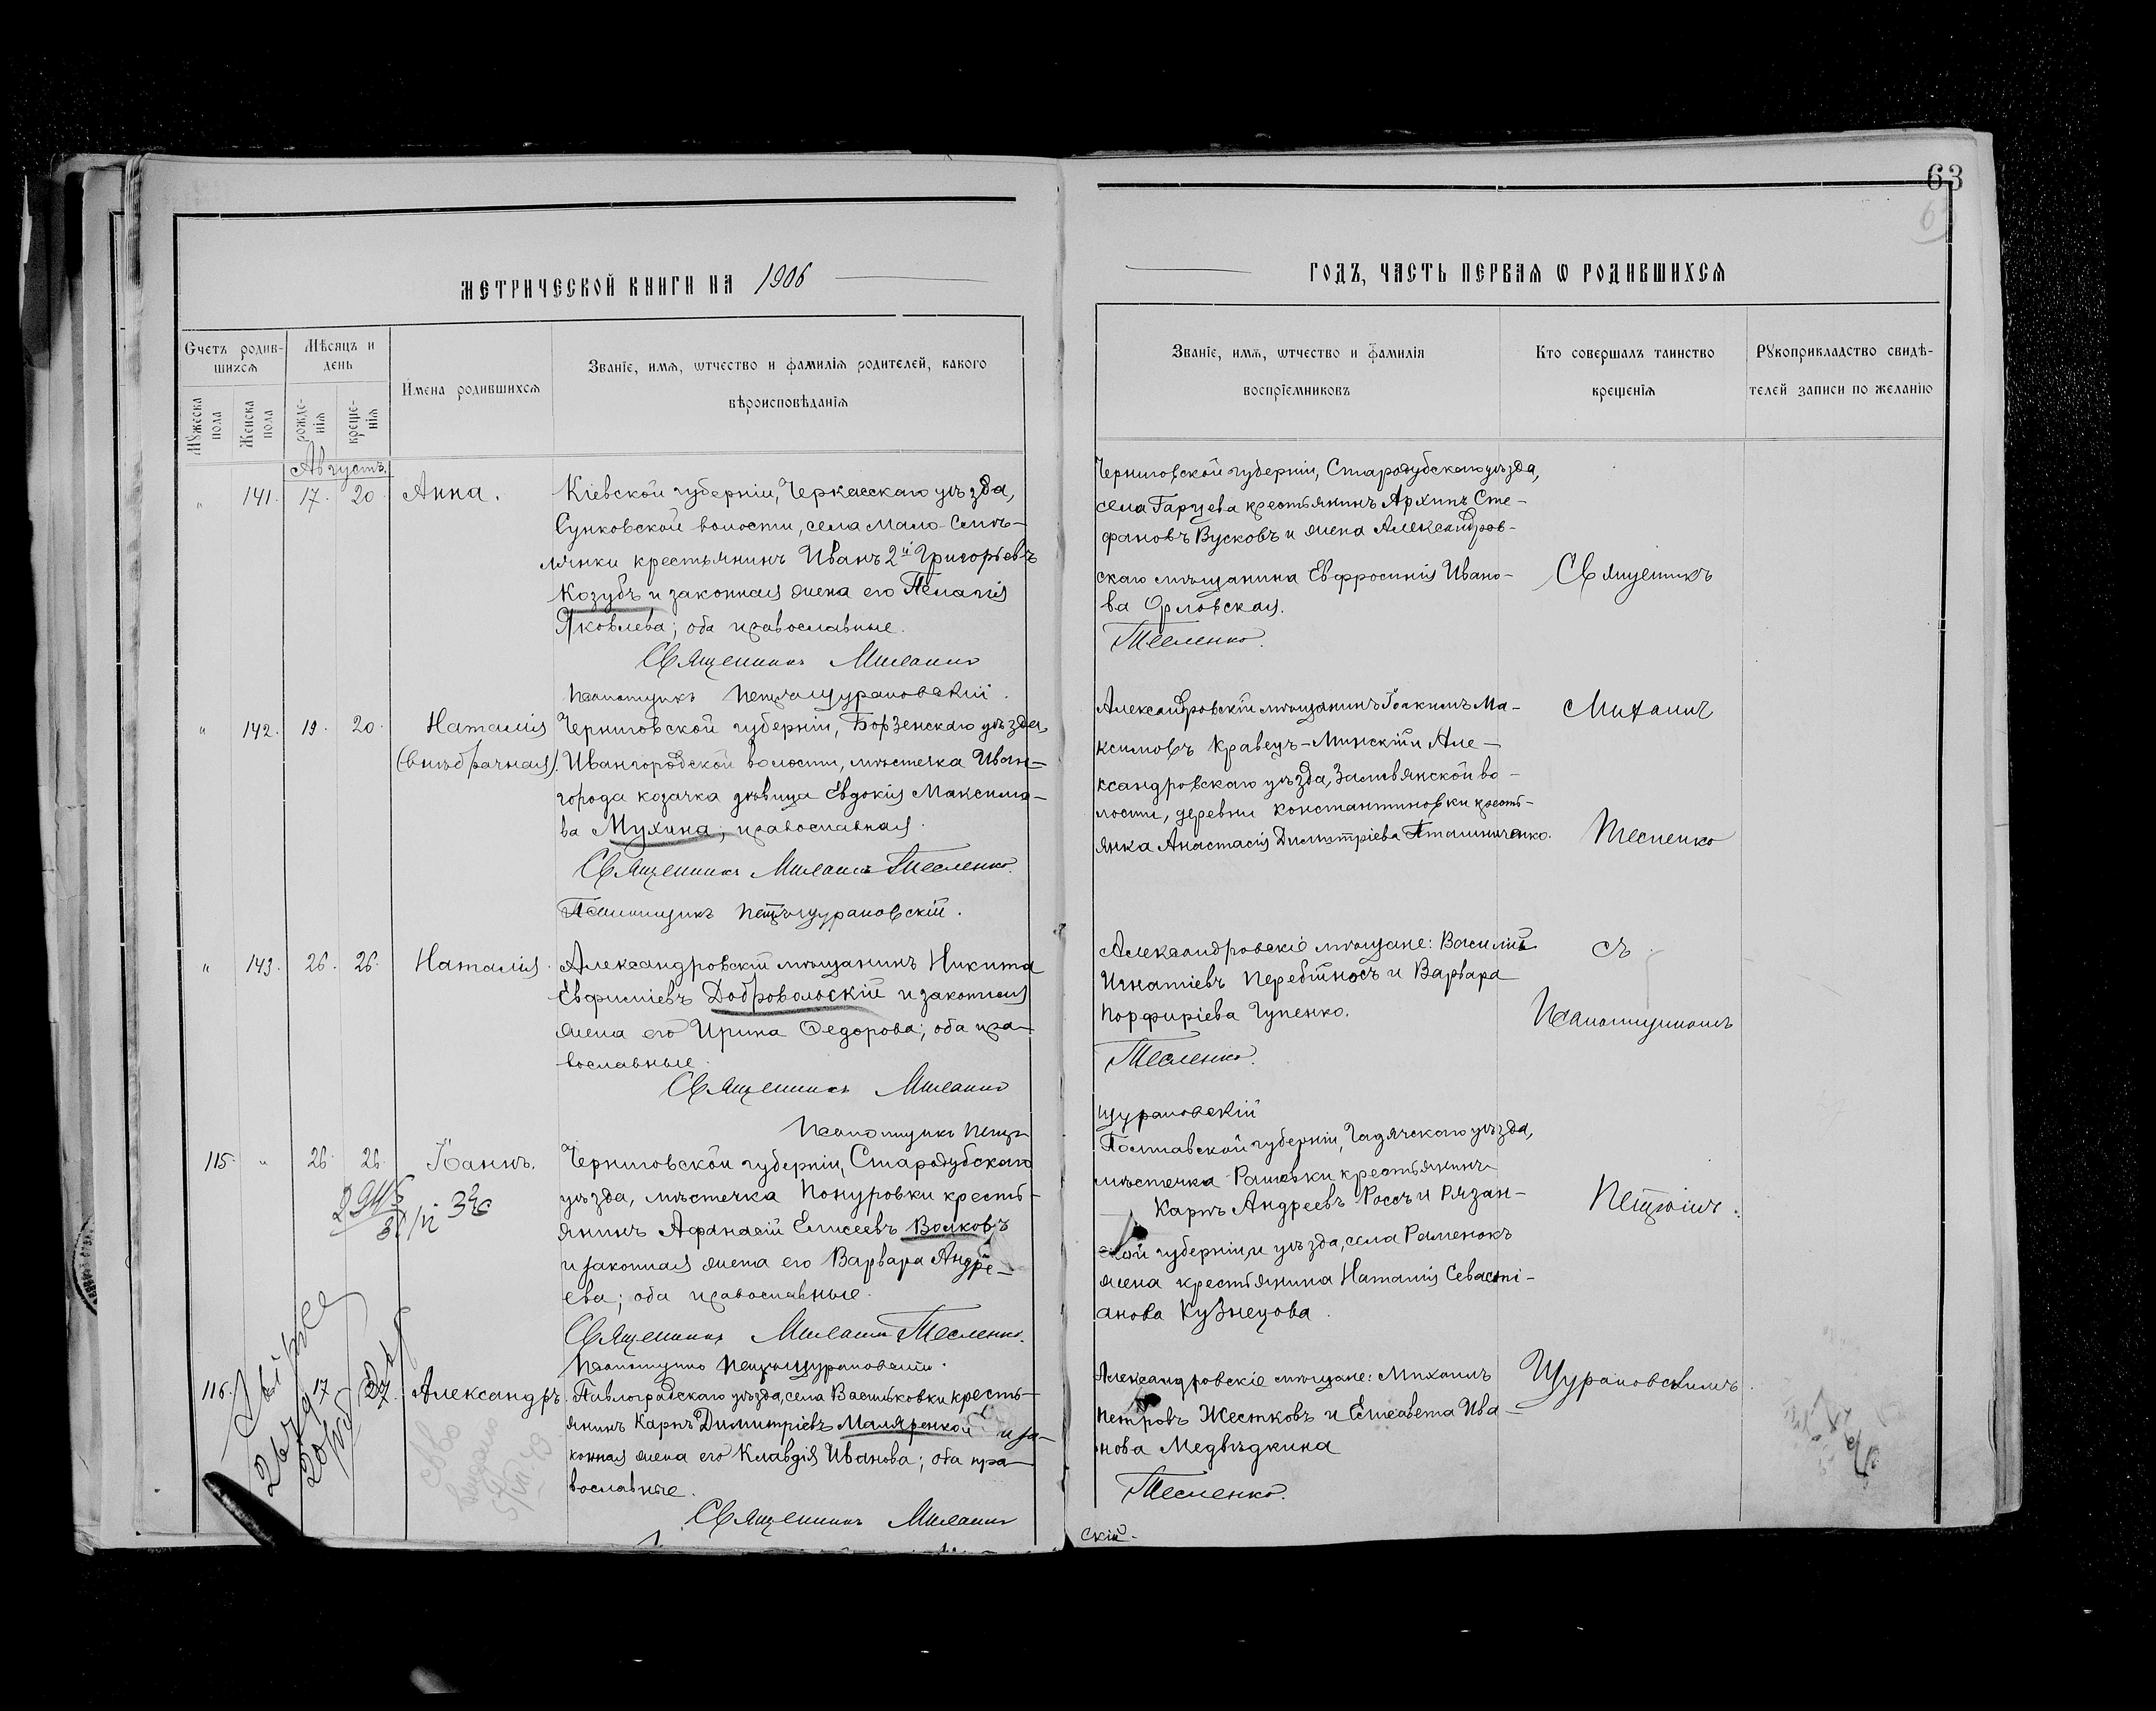 63
МЕТРИЧЕСКОЙ КНИГИ НА 1906
ГОДЪ, ЧАСТЬ ПЕРВАЯ Ѡ РОДИВШИХСЯ
Счетъ родив-
шихся
Мѣсяцъ и
день
Имена родившихся
Званіе, имя, ѡтчество и фамилія родителей, какого
вѣроисповѣданія
Мꙋжеска
пола
Женска
пола
рожде-
нія
креще-
нія
Званіе, имя, ѡтчество и фамилія
воспріемниковъ
Кто совершалъ таинство
крещенія
Рꙋкоприкладство свидѣ-
телей записи по желанію
Августъ.
" 141. 17. 20. Анна.
Кіевской губерніи, Черкасскаго уѣзда,
Сунковской волости, села Мало-Смѣ-
лянки крестьянинъ Иванъ 2й Григорьевъ
Козубъ и законная жена его Пелагія
Яковлева; оба православные.
Священникъ Михаилъ
Псаломщикъ Петръ Щурановскій.
Черниговской губерніи, Стародубскаго уѣзда,
села Гарцева крестьянинъ Архипъ Сте-
фановъ Вусковъ и жена Александров-
скаго мѣщанина Евфросинія Ивано-
ва Орловская.
Тесленко.
Священникъ
" 142. 19. 20. Наталія
(внѣбрачная).
Черниговской губерніи, Борзенскаго уѣзда,
Ивангородской волости, мѣстечка Иван-
города козачка дѣвица Евдокія Максимо-
ва Мухина; православная.
Священникъ Михаилъ Тесленко.
Псаломщикъ Петръ Щурановскій.
Александровскій мѣщанинъ Іоакимъ Ма-
ксимовъ Кравецъ-Минскій и Але-
ксандровскаго уѣзда, волости, деревни Константиновки кресть-
янка Анастасія Димитріева
Михаилъ
Тесленко
" 143. 26. 26. Наталія.
Александровскій мѣщанинъ Никита
Евфиміевъ Добровольскій и законная
жена его Ирина Ѳедорова; оба пра-
вославные.
Священникъ Михаилъ
Псаломщикъ Петръ
Александровскіе мѣщане: Василій
Игнатіевъ Перебійносъ и Варвара
Порфиріева Гупенко.
Тесленко.
Щурановскій
съ
Псаломщикомъ
115. " 26. 26. Іоаннъ.
Черниговской губерніи, Стародубскаго
уѣзда, мѣстечка Понуровки кресть-
янинъ Афанасій Елисеевъ Волковъ
и законная жена его Варвара Андре-
ева; оба православные.
Священникъ Михаилъ Тесленко.
Псаломщикъ Петръ Щурановскій.
Полтавской губерніи, Гадячскаго уѣзда,
мѣстечка Рашевки крестьянинъ
Карпъ Андреевъ Россъ и Рязан-
ской губерніи и уѣзда, села Раменокъ
жена крестьянина Наталія Севасті-
анова Кузнецова.
Петромъ
116. 17 27. Александръ.
Павлоградскаго уѣзда, села Васильковки кресть-
янинъ Карпъ Димитріевъ Маляренко и за-
конная жена его Клавдія Иванова; оба пра-
вославные.
Священникъ Михаилъ
Александровскіе мѣщане: Михаилъ
Петровъ Жестковъ и Елисавета Ива-
нова Медвѣдкина
Тесленко.
скій.
Щурановскимъ.